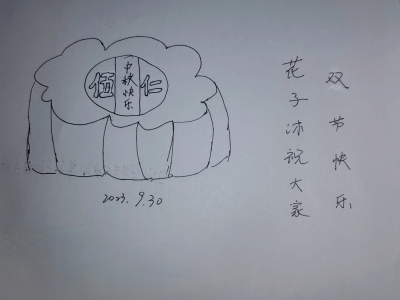 伍仁
中秋快乐
2023.9.30
双节快乐
花子沐祝大家